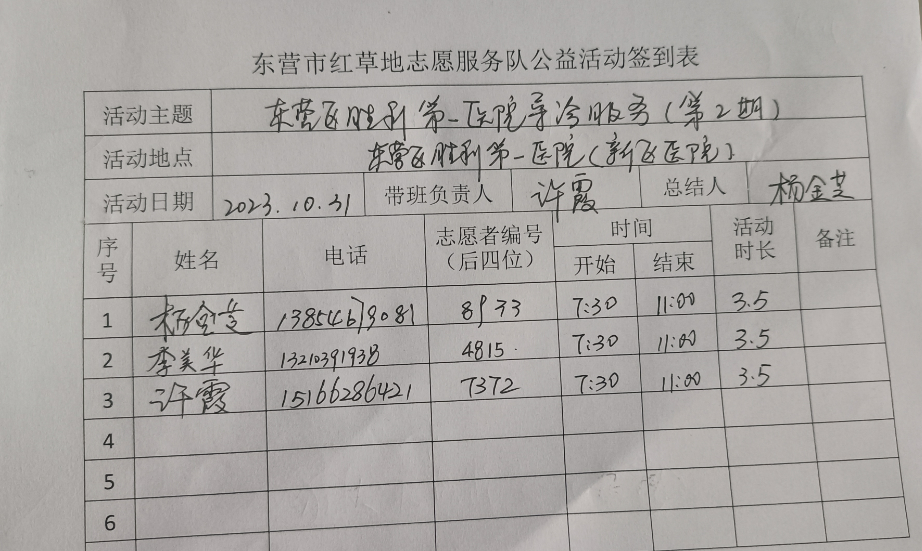 东营市红草地志愿服务队公益活动签到表
活动主题 东营区胜利第一医院导诊服务(第2期)
活动地点 东营区胜利第一医院(新区医院)
活动日期 2023.10.31 带班负责人 许霞 总结人 杨金芝
序号 姓名 电话 志愿者编号(后四位) 时间 开始 结束 活动时长 备注
1 杨金芝 13854679081 8933 7:30 11:00 3.5
2 李美华 13210391938 4815 7:30 11:00 3.5
3 许霞 15166286421 7372 7:30 11:00 3.5
4
5
6